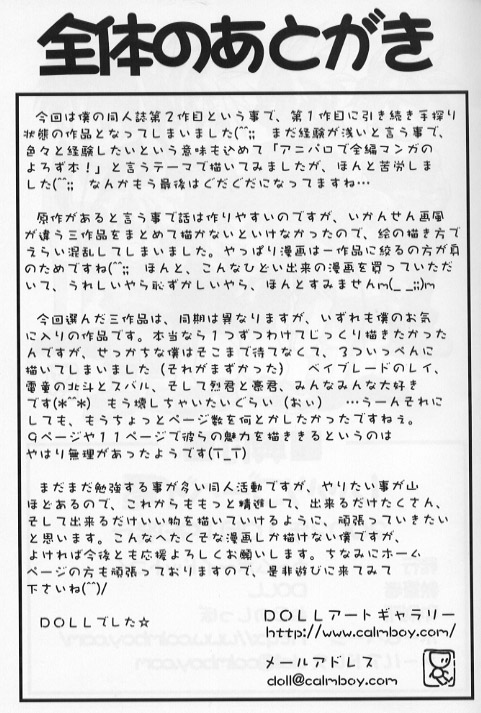 全体のあとがき
今回は僕の同人誌第2作目という事で、第1作目に引き続き手探り
状態の作品となってしまいました(^^;; まだ経験が浅いと言う事で、
色々と経験したいという意味も込めて「アニパロで全編マンガの
よろず本!」と言うテーマで描いてみましたが、ほんと苦労しま
した(^^;; なんかもう最後はぐだぐだになってますね…
原作があると言う事で話は作りやすいのですが、いかんせん画風
が違う三作品をまとめて描かないといけなかったので、絵の描き方で
えらい混乱してしまいました。やっぱり漫画は一作品に絞るの方が身
のためですね(^^;; ほんと、こんなひどい出来の漫画を買っていただ
いて、うれしいやら恥ずかしいやら、ほんとすみませんm(_ _;;)m
今回選んだ三作品は、同期は異なりますが、いずれも僕のお気
に入りの作品です。本当なら1つずつわけてじっくり描きたかった
んですが、せっかちな僕はそこまで待てなくて、3ついっぺんに
描いてしまいました（それがまずかった） ベイブレードのレイ、
電童の北斗とスバル、そして烈君と豪君、みんなみんな大好き
です(*^^*) もう壊しちゃいたいぐらい（おい） …うーんそれに
しても、もうちょっとページ数を何とかしたかったですねぇ。
9ページや11ページで彼らの魅力を描ききるというのは
やはり無理があったようです(T_T)
まだまだ勉強する事が多い同人活動ですが、やりたい事が山
ほどあるので、これからももっと精進して、出来るだけたくさん、
そして出来るだけいい物を描いていけるように、頑張っていきたい
と思います。こんなへたくそな漫画しか描けない僕ですが、
よければ今後とも応援よろしくお願いします。ちなみにホーム
ページの方も頑張っておりますので、是非遊びに来てみて
下さいね(^^)/
DOLLでした☆
DOLLアートギャラリー
http://www.calmboy.com/
メールアドレス
doll@calmboy.com